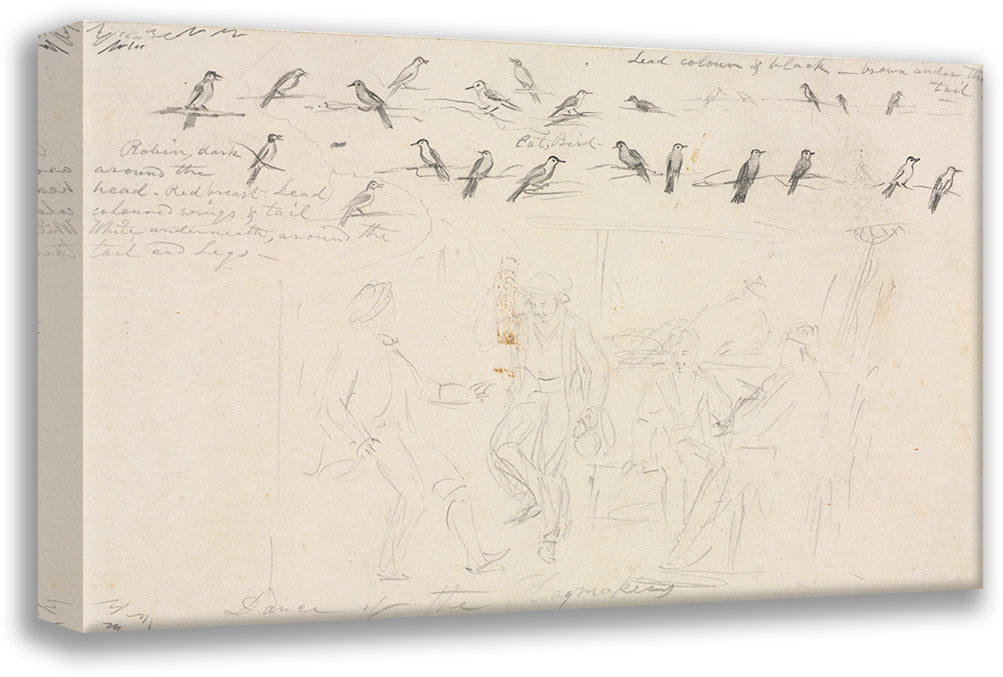 Lead colour & black — brown under the
tail
Cat, Bird -
Robin, dark
around the
head - Red breast - Lead
coloured wings & tail
White underneath, around the
tail and Legs -
Dance of the Haymakers